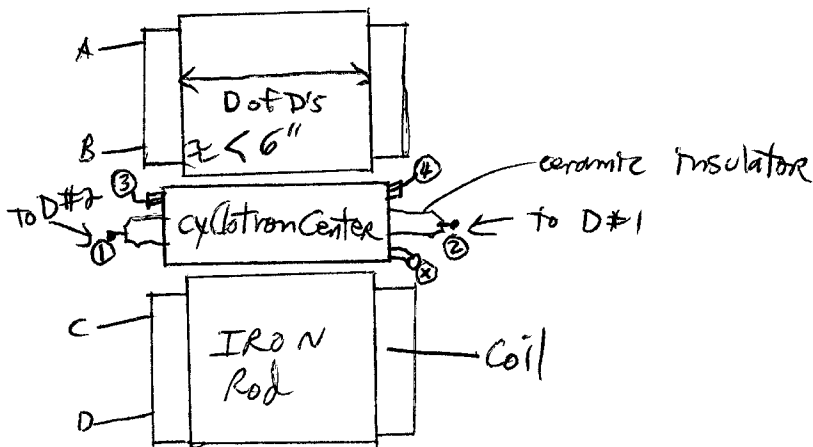 A
D of D's
B
≈ < 6"
ceramic insulator
③
④
TO D#2
cyclotron Center
To D#1
①
②
X
C
IRON
Rod
Coil
D